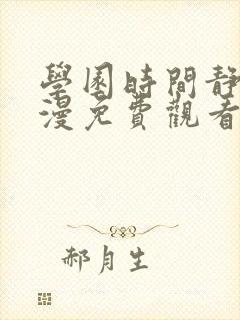 學園時間靜
漫免費觀看
郝月生